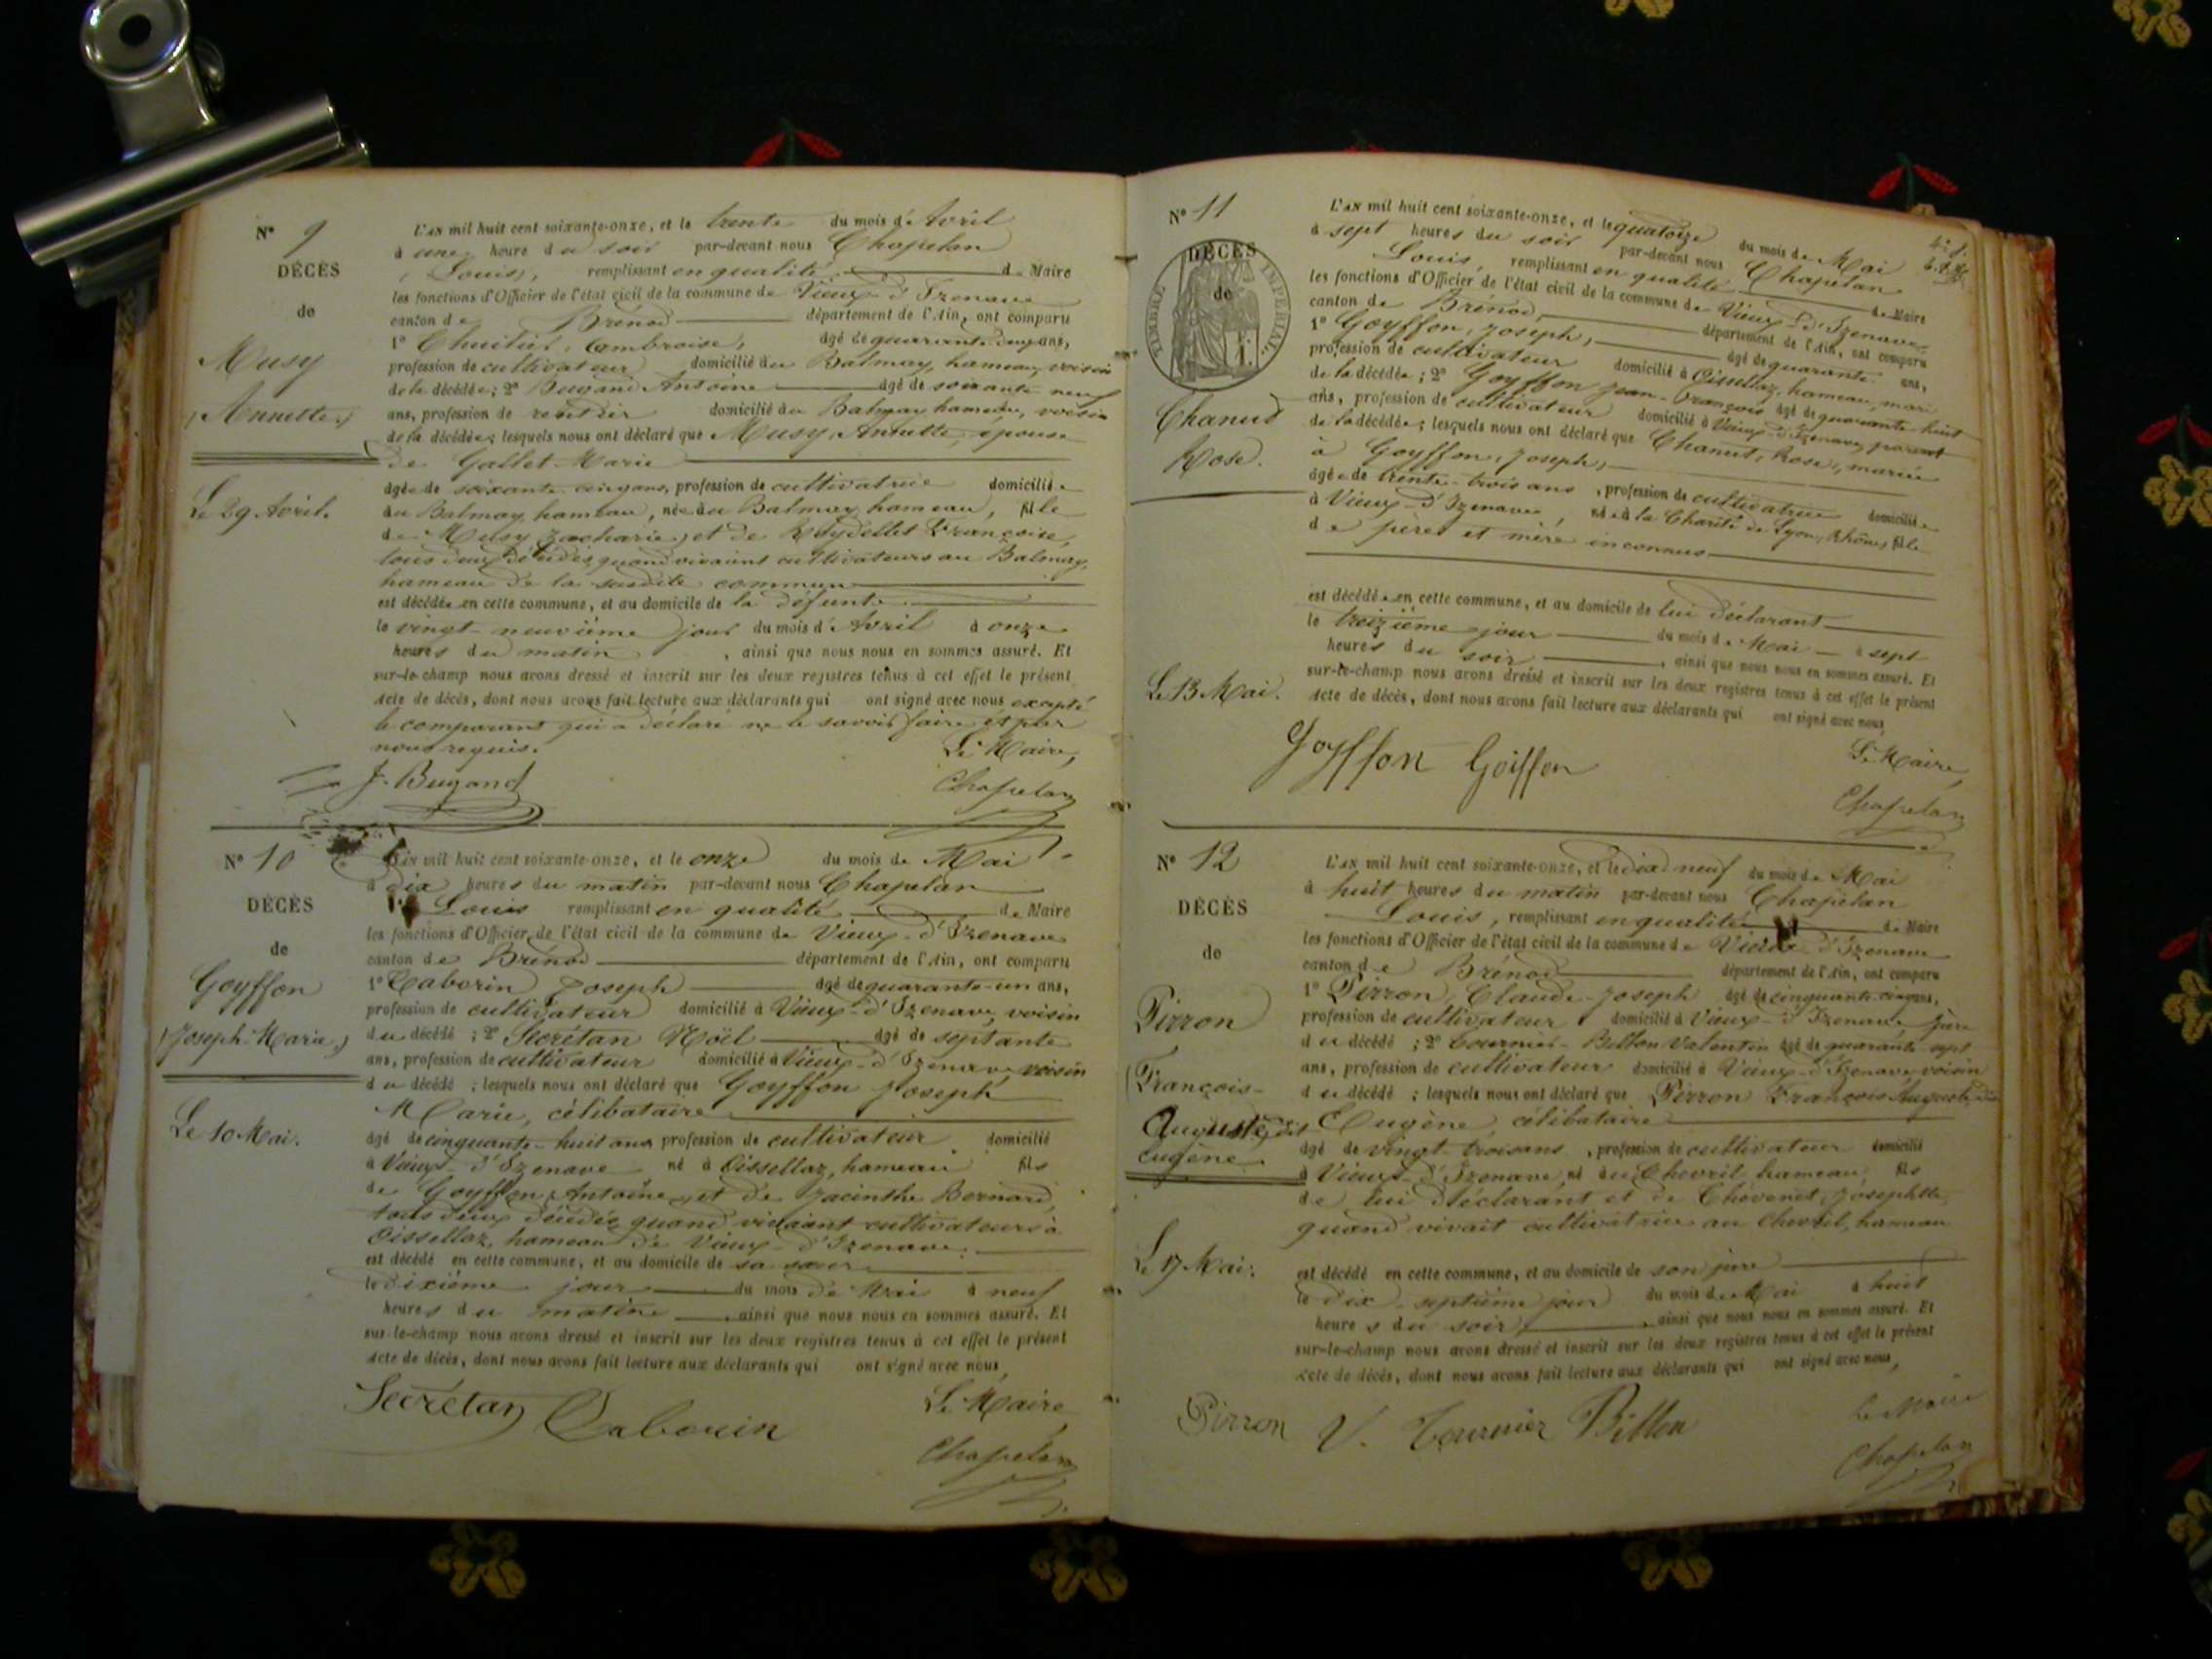 N° 9
DÉCÈS
de
Musy
(Annette.)
Le 29 Avril.
L'AN mil huit cent soixante-onze, et le trente du mois d'Avril
à une heure du soir par-devant nous Chapelan
(Louis), remplissant en qualité de Maire
les fonctions d'Officier de l'état civil de la commune de Vieux-d'Izenave
canton de Brénod département de l'Ain, ont comparu
1° Ambroise, âgé de quarante deux ans,
profession de cultivateur domicilié au Balmay, hameau, voisin
de la décédée; 2° Bugand Antoine âgé de soixante neuf
ans, profession de rentier domicilié au Balmay hameau, voisin
de la décédée; lesquels nous ont déclaré que Musy, Annette, épouse
de Gallet Marie
âgée de soixante cinq ans, profession de cultivatrice domiciliée
au Balmay, hameau, née au Balmay hameau, fille
de Musy Zacharie, et de Reydellet Françoise,
tous deux décédés quand vivaient cultivateurs au Balmay,
hameau de la susdite commune
est décédée en cette commune, et au domicile de la défunte
le vingt-neuvième jour du mois d'Avril à onze
heures du matin, ainsi que nous nous en sommes assuré. Et
sur-le-champ nous avons dressé et inscrit sur les deux registres tenus à cet effet le présent
acte de décès, dont nous avons fait lecture aux déclarants qui ont signé avec nous excepté
le comparant qui a déclaré ne le savoir faire et par
nous requis.
Le Maire,
J. Bugand
Chapelan
N° 10
DÉCÈS
de
Goyffon
(Joseph-Marie)
Le 10 Mai.
L'AN mil huit cent soixante-onze, et le onze du mois de Mai
à dix heures du matin par-devant nous Chapelan
Louis remplissant en qualité de Maire
les fonctions d'Officier de l'état civil de la commune de Vieux-d'Izenave
canton de Brénod département de l'Ain, ont comparu
1° Cabouin Joseph âgé de quarante-un ans,
profession de cultivateur domicilié à Vieux-d'Izenave, voisin
du décédé; 2° Secrétan Noël âgé de septante
ans, profession de cultivateur domicilié à Vieux-d'Izenave voisin
du décédé; lesquels nous ont déclaré que Goyffon Joseph
Marie, célibataire
âgé de cinquante-huit ans profession de cultivateur domicilié
à Vieux-d'Izenave né à Oissellaz, hameau fils
de Goyffon, Antoine, et de Jacinthe Bernard,
tous deux décédés quand vivaient cultivateurs à
Oissellaz, hameau de Vieux-d'Izenave.
est décédé en cette commune, et au domicile de sa sœur
le dixième jour du mois de Mai à neuf
heures du matin, ainsi que nous nous en sommes assuré. Et
sur-le-champ nous avons dressé et inscrit sur les deux registres tenus à cet effet le présent
acte de décès, dont nous avons fait lecture aux déclarants qui ont signé avec nous,
Le Maire
Secrétan Cabouin
Chapelan
N° 11
DÉCÈS
de
TIMBRE IMPÉRIAL
Chanut
Rose.
Le 13 Mai.
L'AN mil huit cent soixante-onze, et le quatorze du mois de Mai
à sept heures du soir par-devant nous Chapelan
Louis, remplissant en qualité de Maire
les fonctions d'Officier de l'état civil de la commune de Vieux-d'Izenave
canton de Brénod, département de l'Ain, ont comparu
1° Goyffon, Joseph, âgé de quarante ans,
profession de cultivateur domicilié à Oissellaz, hameau, mari
de la décédée; 2° Goyffon Jean-François âgé de quarante-huit
ans, profession de cultivateur domicilié à Vieux-d'Izenave, parent
de la décédée; lesquels nous ont déclaré que Chanut, Rose, mariée
à Goyffon, Joseph,
âgée de trente-trois ans, profession de cultivatrice domiciliée
à Vieux-d'Izenave, née à la Charité de Lyon, Rhône, fille
de père et mère inconnus
est décédée en cette commune, et au domicile de lui déclarant
le treizième jour du mois de Mai à sept
heures du soir, ainsi que nous nous en sommes assuré. Et
sur-le-champ nous avons dressé et inscrit sur les deux registres tenus à cet effet le présent
acte de décès, dont nous avons fait lecture aux déclarants qui ont signé avec nous,
Le Maire
Goyffon Goiffon
Chapelan
N° 12
DÉCÈS
de
Pirron
(François-
Auguste, dit
Eugène.
Le 17 Mai.
L'AN mil huit cent soixante-onze, et le dix neuf du mois de Mai
à huit heures du matin par-devant nous Chapelan
Louis, remplissant en qualité de Maire
les fonctions d'Officier de l'état civil de la commune de Vieux-d'Izenave
canton de Brénod département de l'Ain, ont comparu
1° Pirron, Claude-Joseph âgé de cinquante-cinq ans,
profession de cultivateur domicilié à Vieux-d'Izenave père
du décédé; 2° Tournier-Billon Valentin âgé de quarante sept
ans, profession de cultivateur domicilié à Vieux-d'Izenave, voisin
du décédé; lesquels nous ont déclaré que Pirron François Auguste, dit
Eugène, célibataire
âgé de vingt-trois ans, profession de cultivateur domicilié
à Vieux-d'Izenave, né au Chevril, hameau, fils
de lui déclarant et de Chevenet, Josephte,
quand vivait cultivatrice au Chevril, hameau
est décédé en cette commune, et au domicile de son père
le dix-septième jour du mois de Mai à huit
heures du soir, ainsi que nous nous en sommes assuré. Et
sur-le-champ nous avons dressé et inscrit sur les deux registres tenus à cet effet le présent
acte de décès, dont nous avons fait lecture aux déclarants qui ont signé avec nous,
Le Maire
Pirron V. Tournier Billon
Chapelan